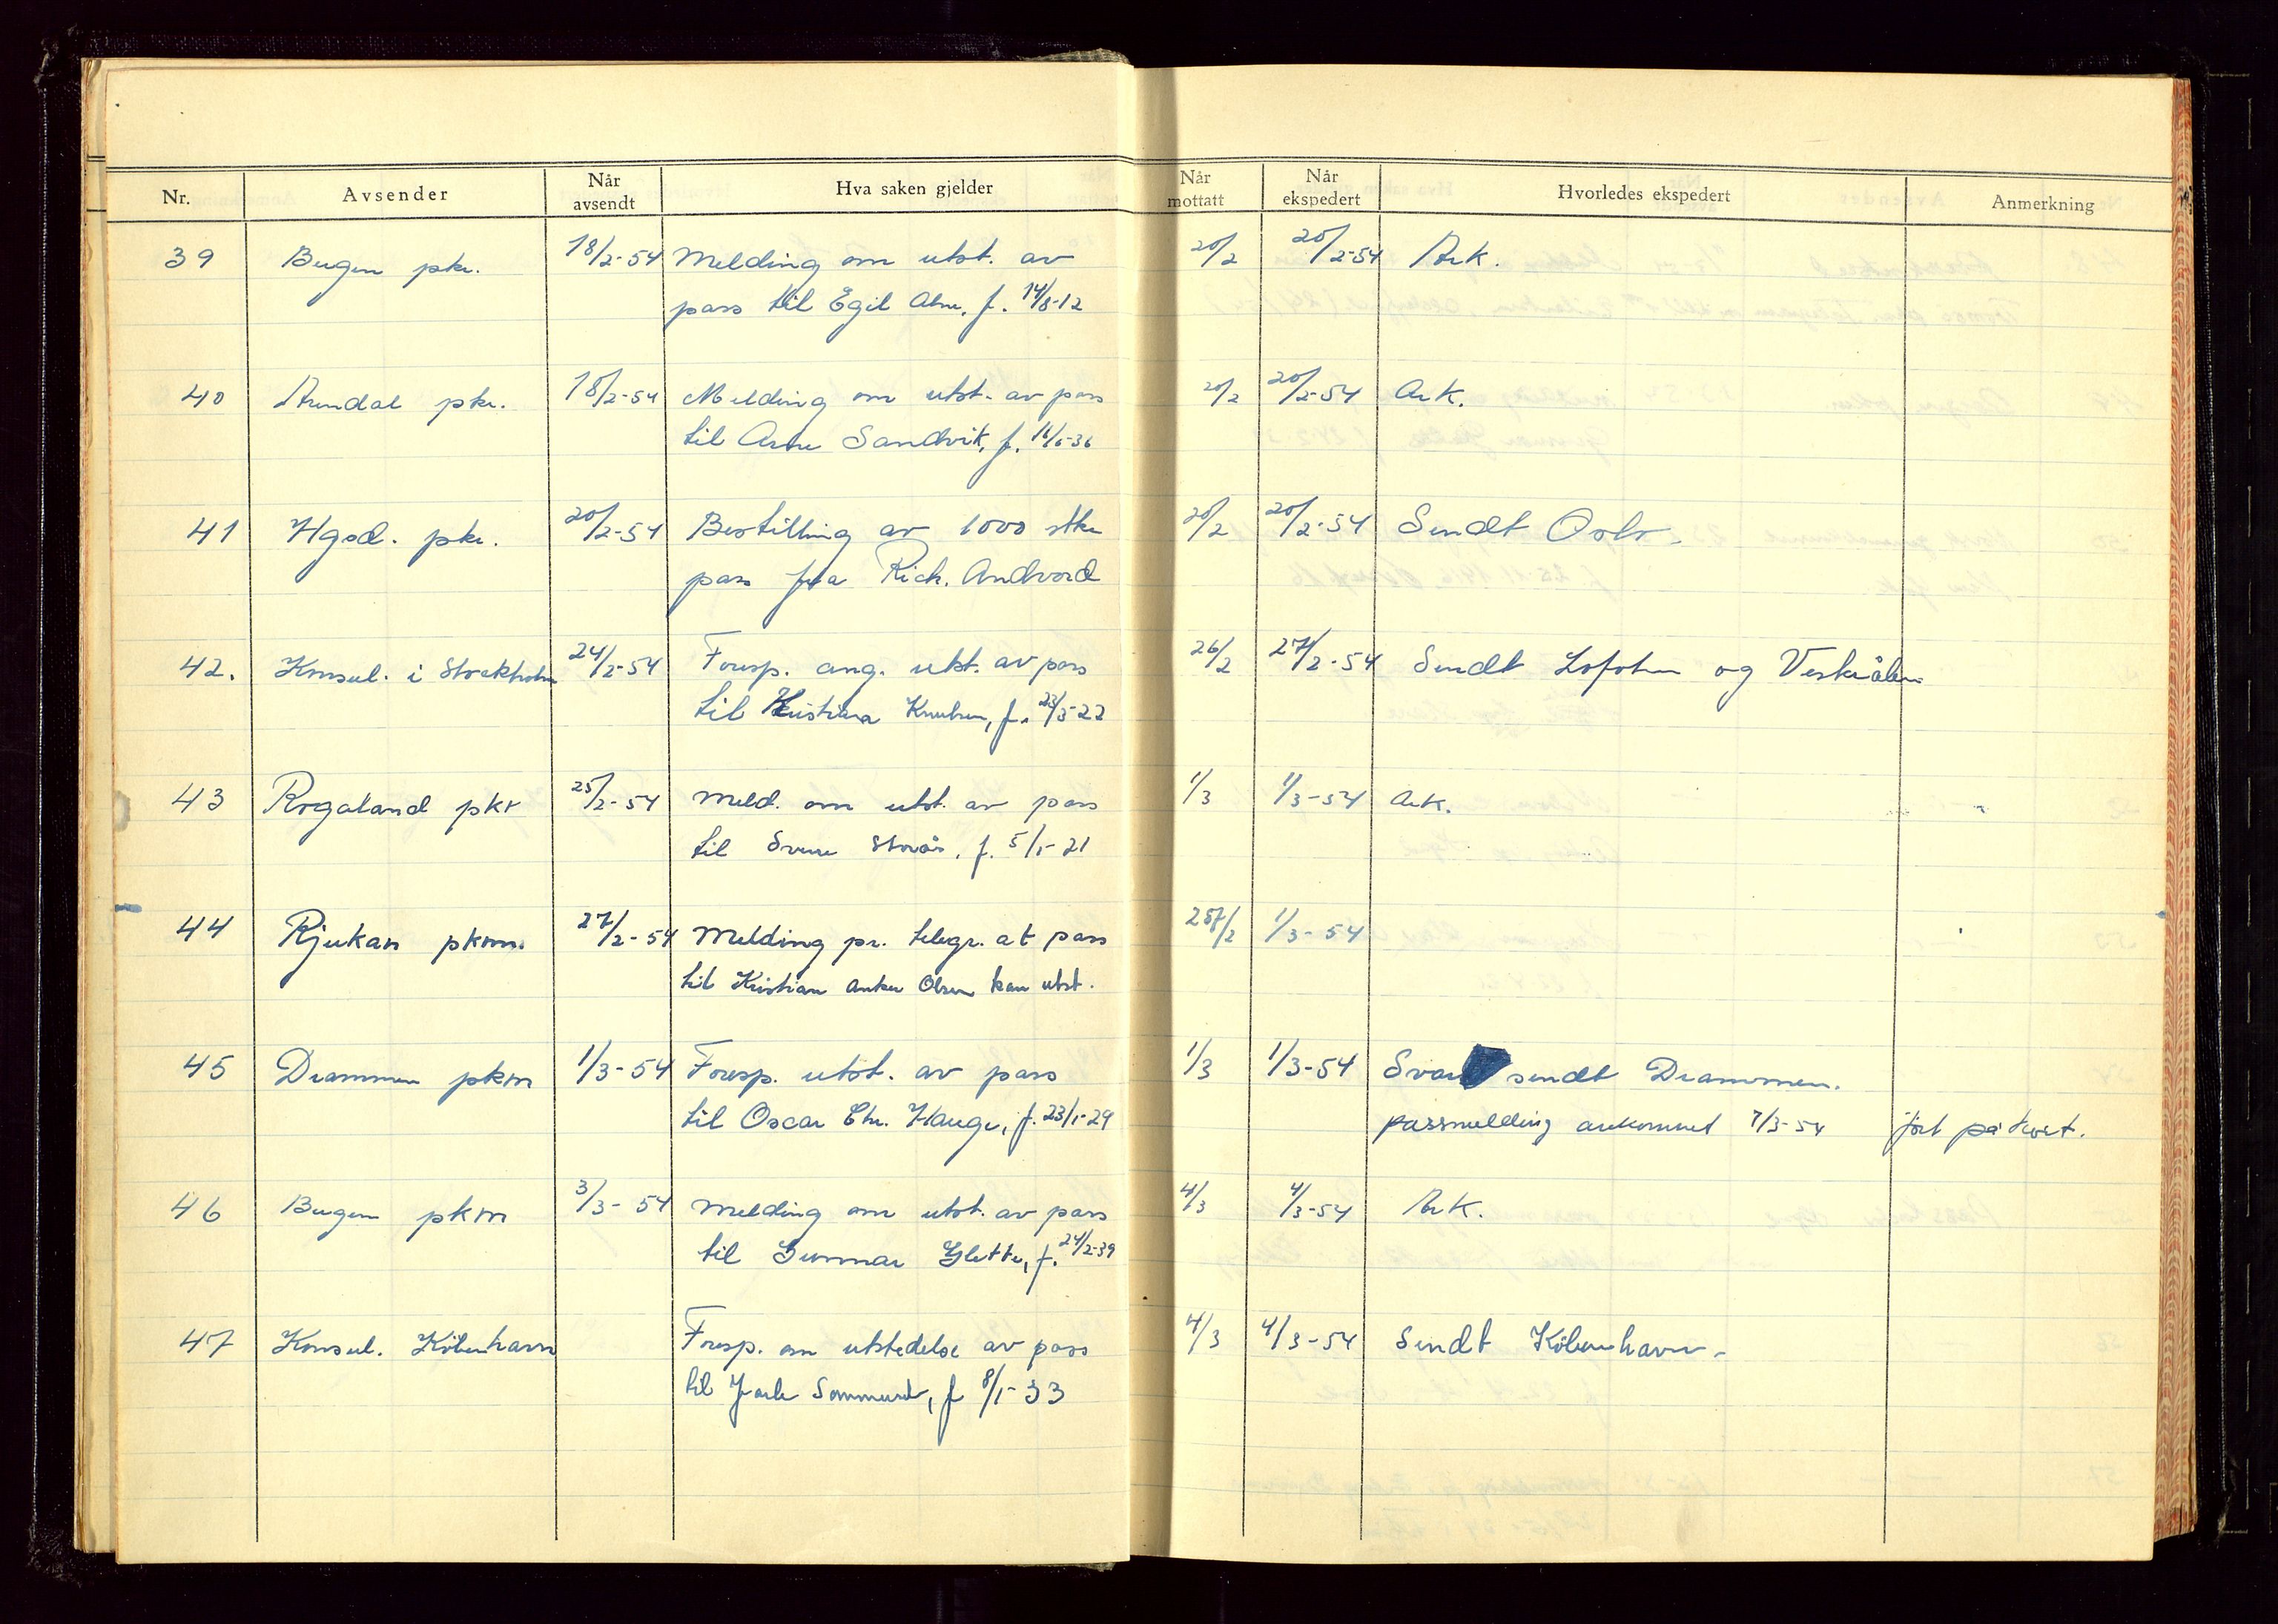 Nr. Avsender Når avsendt Hva saken gjelder Når mottatt Når ekspedert Hvorledes ekspedert Anmerkning
39 Bergen pkr. 18/2-54 Melding om utst. av 20/2 20/2-54 Ark.
pass til Egil Alne, f. 14/8-12
40 Arendal pkr. 18/2-54 Melding om utst. av pass 20/2 20/2-54 Ark.
til Arne Sandvik, f. 16/5-36
41 Hgsd. pkr. 20/2-54 Bestilling av 1000 stkr 20/2 20/2-54 Sendt Oslo.
pass fra Rich. Andvord
42. Konsul. i Stockholm 24/2-54 Foresp. ang. utst. av pass 26/2 27/2-54 Sendt Lofoten og Vesterålen
til Kristiana Knutsen, f. 23/3-22
43 Rogaland pkr 25/2-54 Meld. om utst. av pass 1/3 1/3-54 Ark.
til Sverre Storås, f. 5/1-21
44 Rjukan pkm. 27/2-54 Melding pr. telegr. at pass 27/2 1/3-54
til Kristian Anker Olsen kan utst.
45 Drammen pkm 1/3-54 Foresp. utst. av pass 1/3 1/3-54 Svar sendt Drammen.
til Oscar Chr. Hauge, f. 23/1-29 passmelding ankommet 7/3-54 ført på kort.
46 Bergen pkm 3/3-54 Melding om utst. av pass 4/3 4/3-54 Ark.
til Gunnar Glette, f. 24/2-39
47 Konsul. København Foresp. om utstedelse av pass 4/3 4/3-54 Sendt København.
til Jarle f 8/1-33